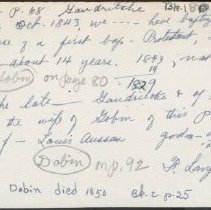 p. 68 Gaudritche
Oct. 1843, we — have bapt
of a first bap. Protestant,
about 14 years. 1843,
19
Gobin on page 80 1829
the late — Gaudritche & of
the wife of Gobin of this p
Louis Aussan godm-
Dobin on p. 92 P. Lang
Dobin died 1850 Bk. 2 p. 25